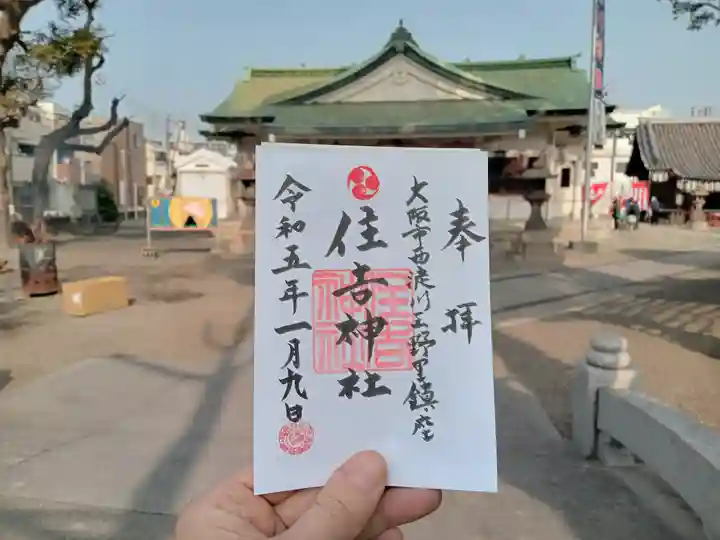 奉拝
大阪市西淀川区野里鎮座
住吉神社
住吉神社
令和五年一月九日